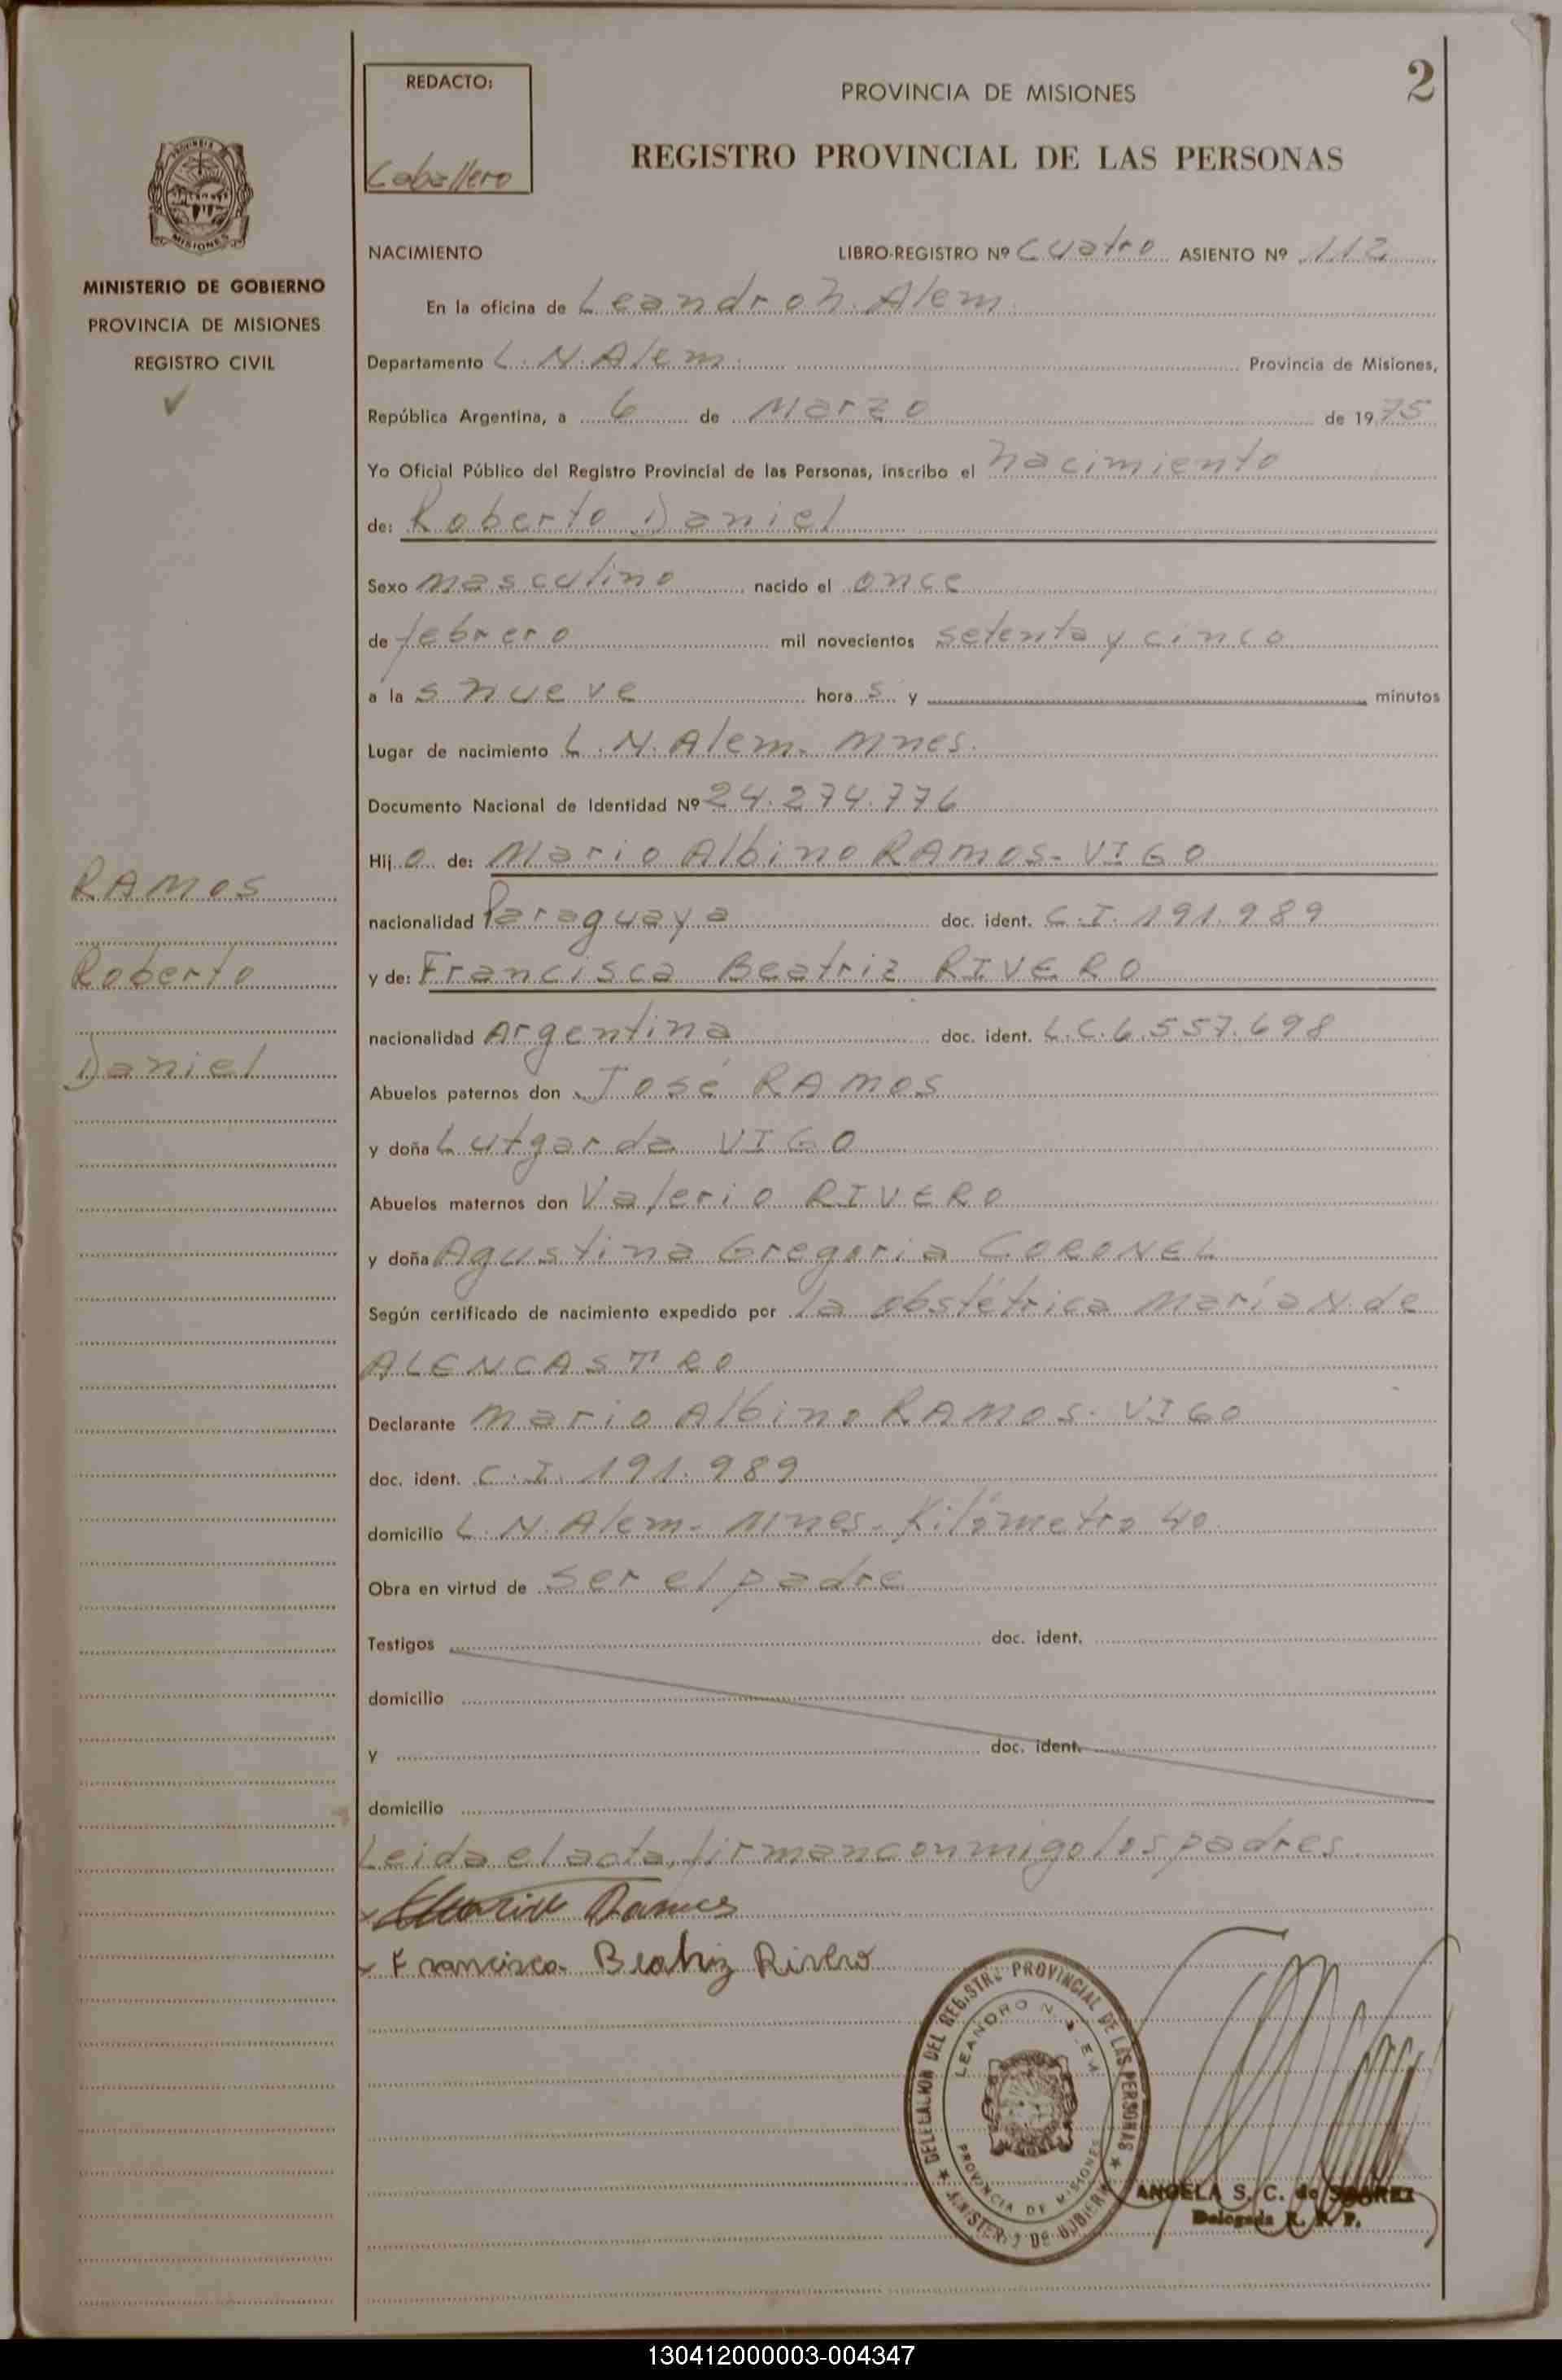 REDACTO:
Caballero
PROVINCIA DE MISIONES
2
REGISTRO PROVINCIAL DE LAS PERSONAS
MISIONES
MINISTERIO DE GOBIERNO
PROVINCIA DE MISIONES
REGISTRO CIVIL
NACIMIENTO LIBRO-REGISTRO Nº Cuatro ASIENTO Nº 112
En la oficina de Leandro N. Alem.
Departamento L. N. Alem. Provincia de Misiones,
República Argentina, a 6 de Marzo de 1975
Yo Oficial Público del Registro Provincial de las Personas, inscribo el nacimiento
de: Roberto Daniel
Sexo masculino nacido el once
de febrero mil novecientos setenta y cinco
a la s nueve hora s y minutos
Lugar de nacimiento L. N. Alem. Mnes.
Documento Nacional de Identidad Nº 24.274.776
Hij o de: Mario Albino RAMOS-VIGO
nacionalidad Paraguaya doc. ident. C.I. 191.989
y de: Francisca Beatriz RIVERO
nacionalidad Argentina doc. ident. L.C. 6.557.698
Abuelos paternos don José RAMOS
y doña Lutgarda VIGO
Abuelos maternos don Valerio RIVERO
y doña Agustina Gregoria CORONEL
Según certificado de nacimiento expedido por la obstétrica María N. de
ALENCASTRO
Declarante Mario Albino RAMOS-VIGO
doc. ident. C.I. 191.989
domicilio L. N. Alem. Mnes. Kilómetro 40
Obra en virtud de ser el padre
Testigos doc. ident.
domicilio
y doc. ident.
domicilio
Leida el acta, firman conmigo los padres
RAMOS
Roberto
Daniel
Ramos
Francisca Beatriz Rivero
DELEGACION DEL REGISTRO PROVINCIAL DE LAS PERSONAS
LEANDRO N. ALEM
PROVINCIA DE MISIONES
MINISTERIO DE GOBIERNO
ANGELA S. C. de SUAREZ
Delegada R. P. P.
130412000003-004347